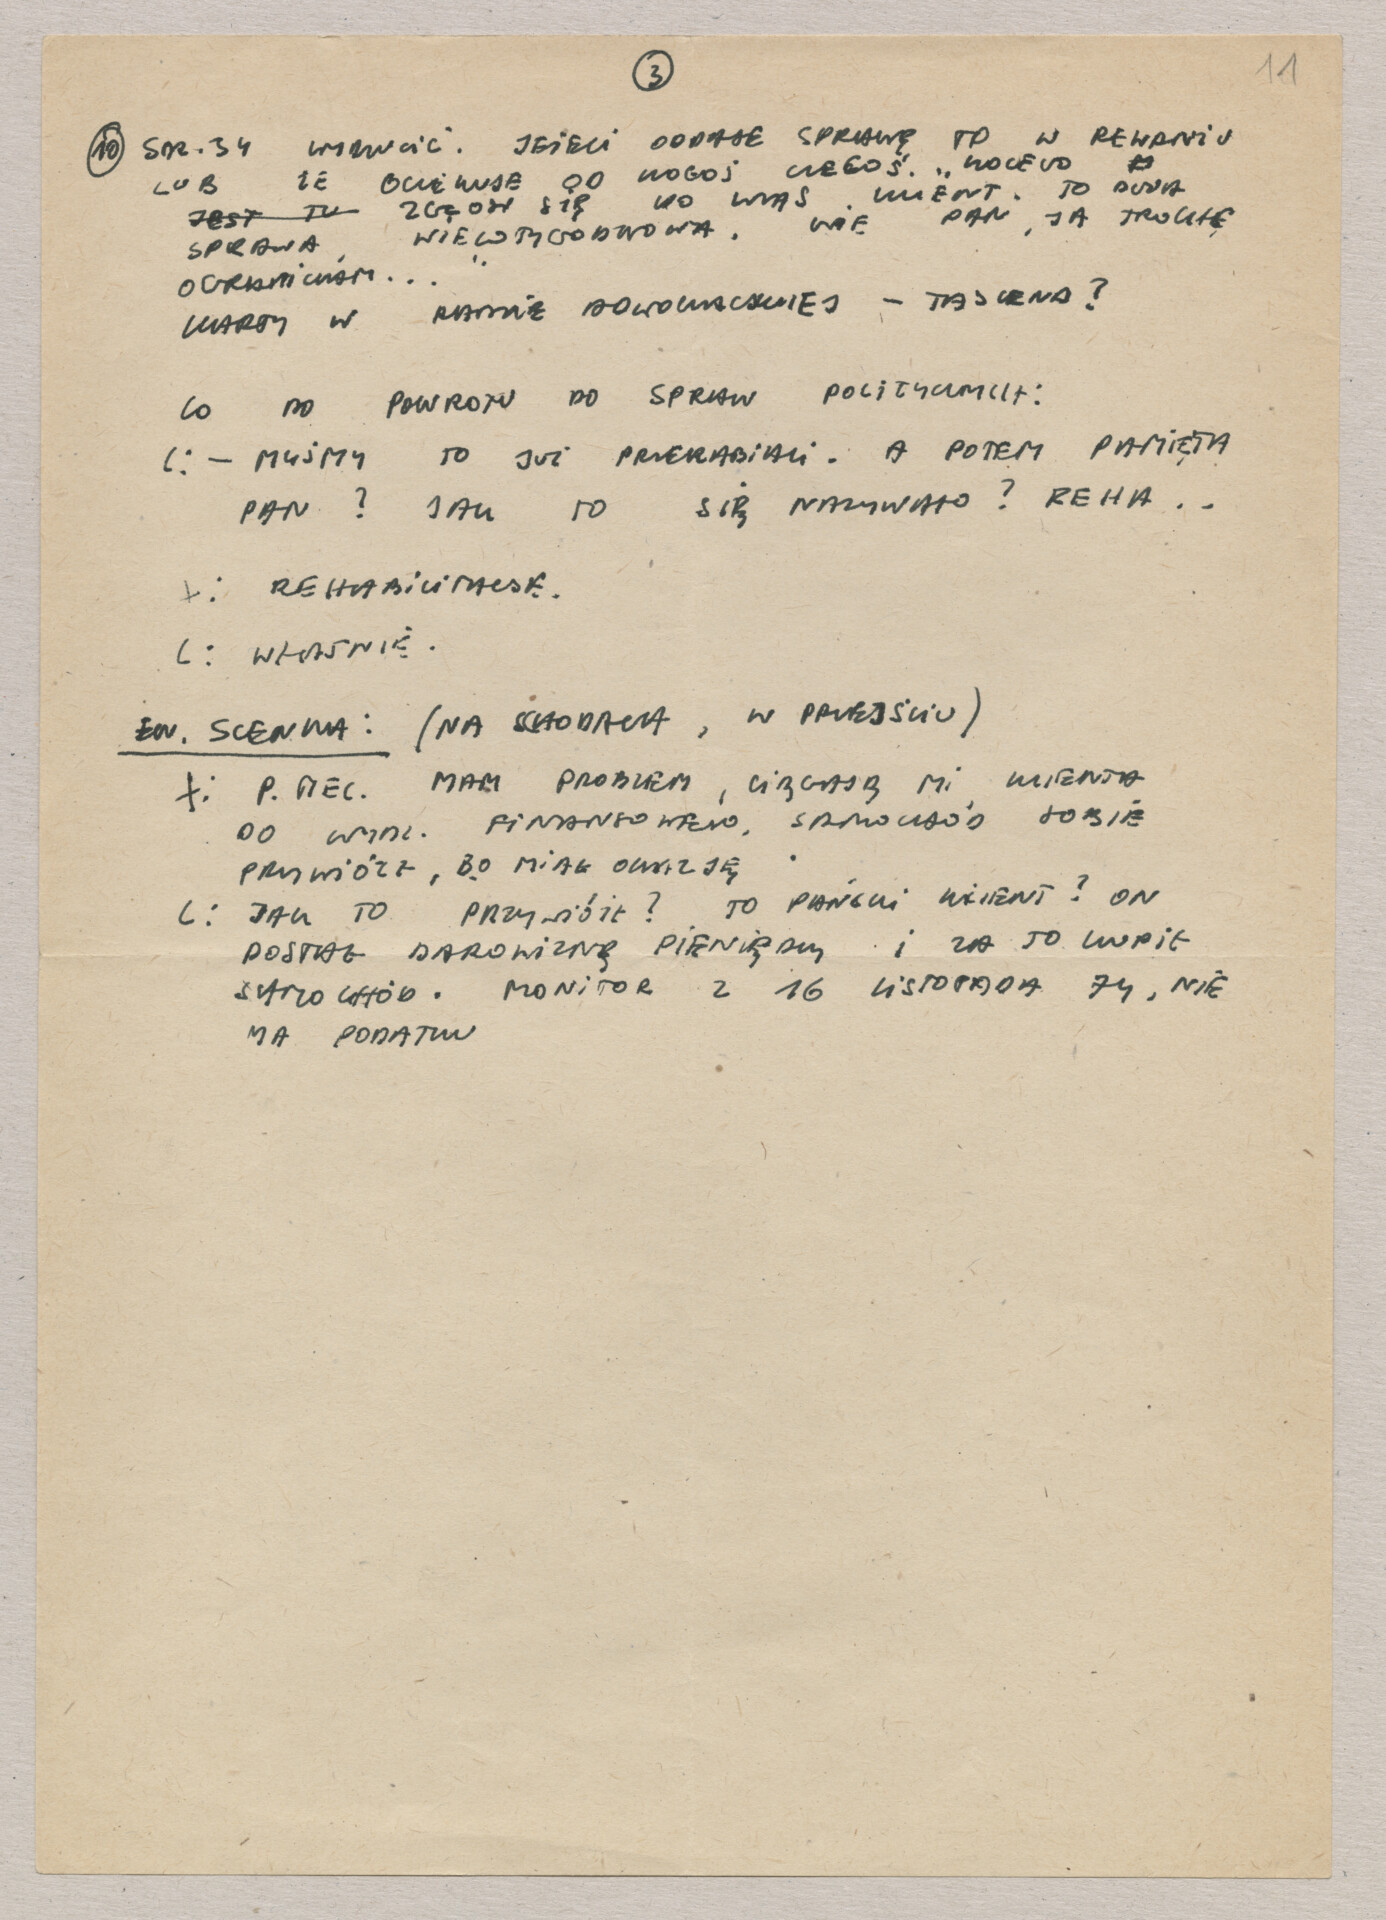 3
11
10 STR. 34 WYRZUCIĆ. JEŻELI ODDAJE SPRAWĘ TO W REWANŻU
LUB ŻE OCZEKUJE OD KOGOŚ CZEGOŚ. „KOLEGO
JEST TU ZGŁOSI SIĘ DO WAS KLIENT. TO DUŻA
SPRAWA, WIELOTYGODNIOWA. WIE PAN, JA TROCHĘ
OGRANICZAM..."
KARTY W RADZIE ADWOKACKIEJ – TA SCENA?
CO DO POWROTU DO SPRAW POLITYCZNYCH:
L: – MYŚMY TO JUŻ PRZERABIALI. A POTEM PAMIĘTA
PAN? JAK TO SIĘ NAZYWAŁO? REHA..
X: REHABILITACJĘ.
L: WŁAŚNIE.
EW. SCENKA: (NA SCHODACH, W PRZEJŚCIU)
X: P. MEC. MAM PROBLEM, CIĄGAJĄ MI KLIENTA
DO WYDZ. FINANSOWEGO, SAMOCHÓD SOBIE
PRZYWIÓZŁ, BO MIAŁ OKAZJĘ.
L: JAK TO PRZYWIÓZŁ? TO PAŃSKI KLIENT? ON
DOSTAŁ DAROWIZNĘ PIENIĘDZY I ZA TO KUPIŁ
SAMOCHÓD. MONITOR Z 16 LISTOPADA 74, NIE
MA PODATKU